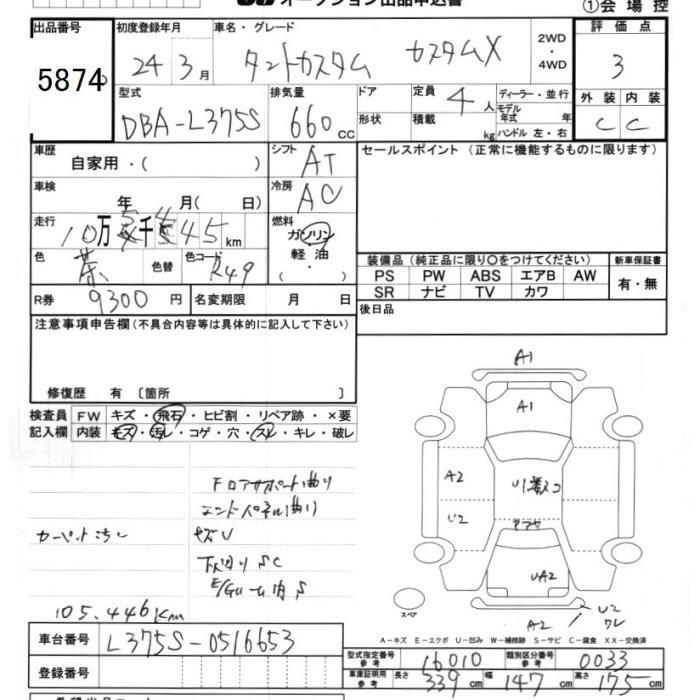 オークション出品申込書
①会場控
出品番号 初度登録年月 車名・グレード 評価点
5874 24年3月 タントカスタム カスタムX 2WD・4WD 3
型式 排気量 ドア 定員 4人 ディーラー・並行 外装 内装
DBA-L375S 660cc 形状 積載 kg モデル年式 年 ハンドル 左・右 C C
車歴 シフト セールスポイント(正常に機能するものに限ります)
自家用・( ) AT
車検 冷房
年 月( 日) AC
走行 燃料
10万 5千 445km ガソリン
色 色替 色コード 軽油
茶 R49 ( ・ )
装備品(純正品に限り○をつけてください) 新車保証書
PS PW ABS エアB AW 有・無
SR ナビ TV カワ
R券 9300円 名変期限 月 日 後日品
注意事項申告欄(不具合内容等は具体的に記入して下さい)
修復歴 有 〔箇所 〕
検査員 FW キズ・飛石・ヒビ割・リペア跡・×要
記入欄 内装 キズ・汚レ・コゲ・穴・スレ・キレ・破レ
Fロアサポート曲り
エンドパネル曲り
カーペット汚レ キズU
下廻り SC
E/Gルーム内 S
105,446Km
A1
A1
A2
U2
アンテナ
UA2
A2
U2
ワレ
スペア
A-キズ E-エクボ U-凹み W-補修跡 S-サビ C-腐食 XX-交換済
車台番号 L375S-0516653
登録番号
型式指定番号 参考 16010 類別区分番号 参考 0033
車庫証明用 参考 長さ 339cm 幅 147cm 高さ 175cm